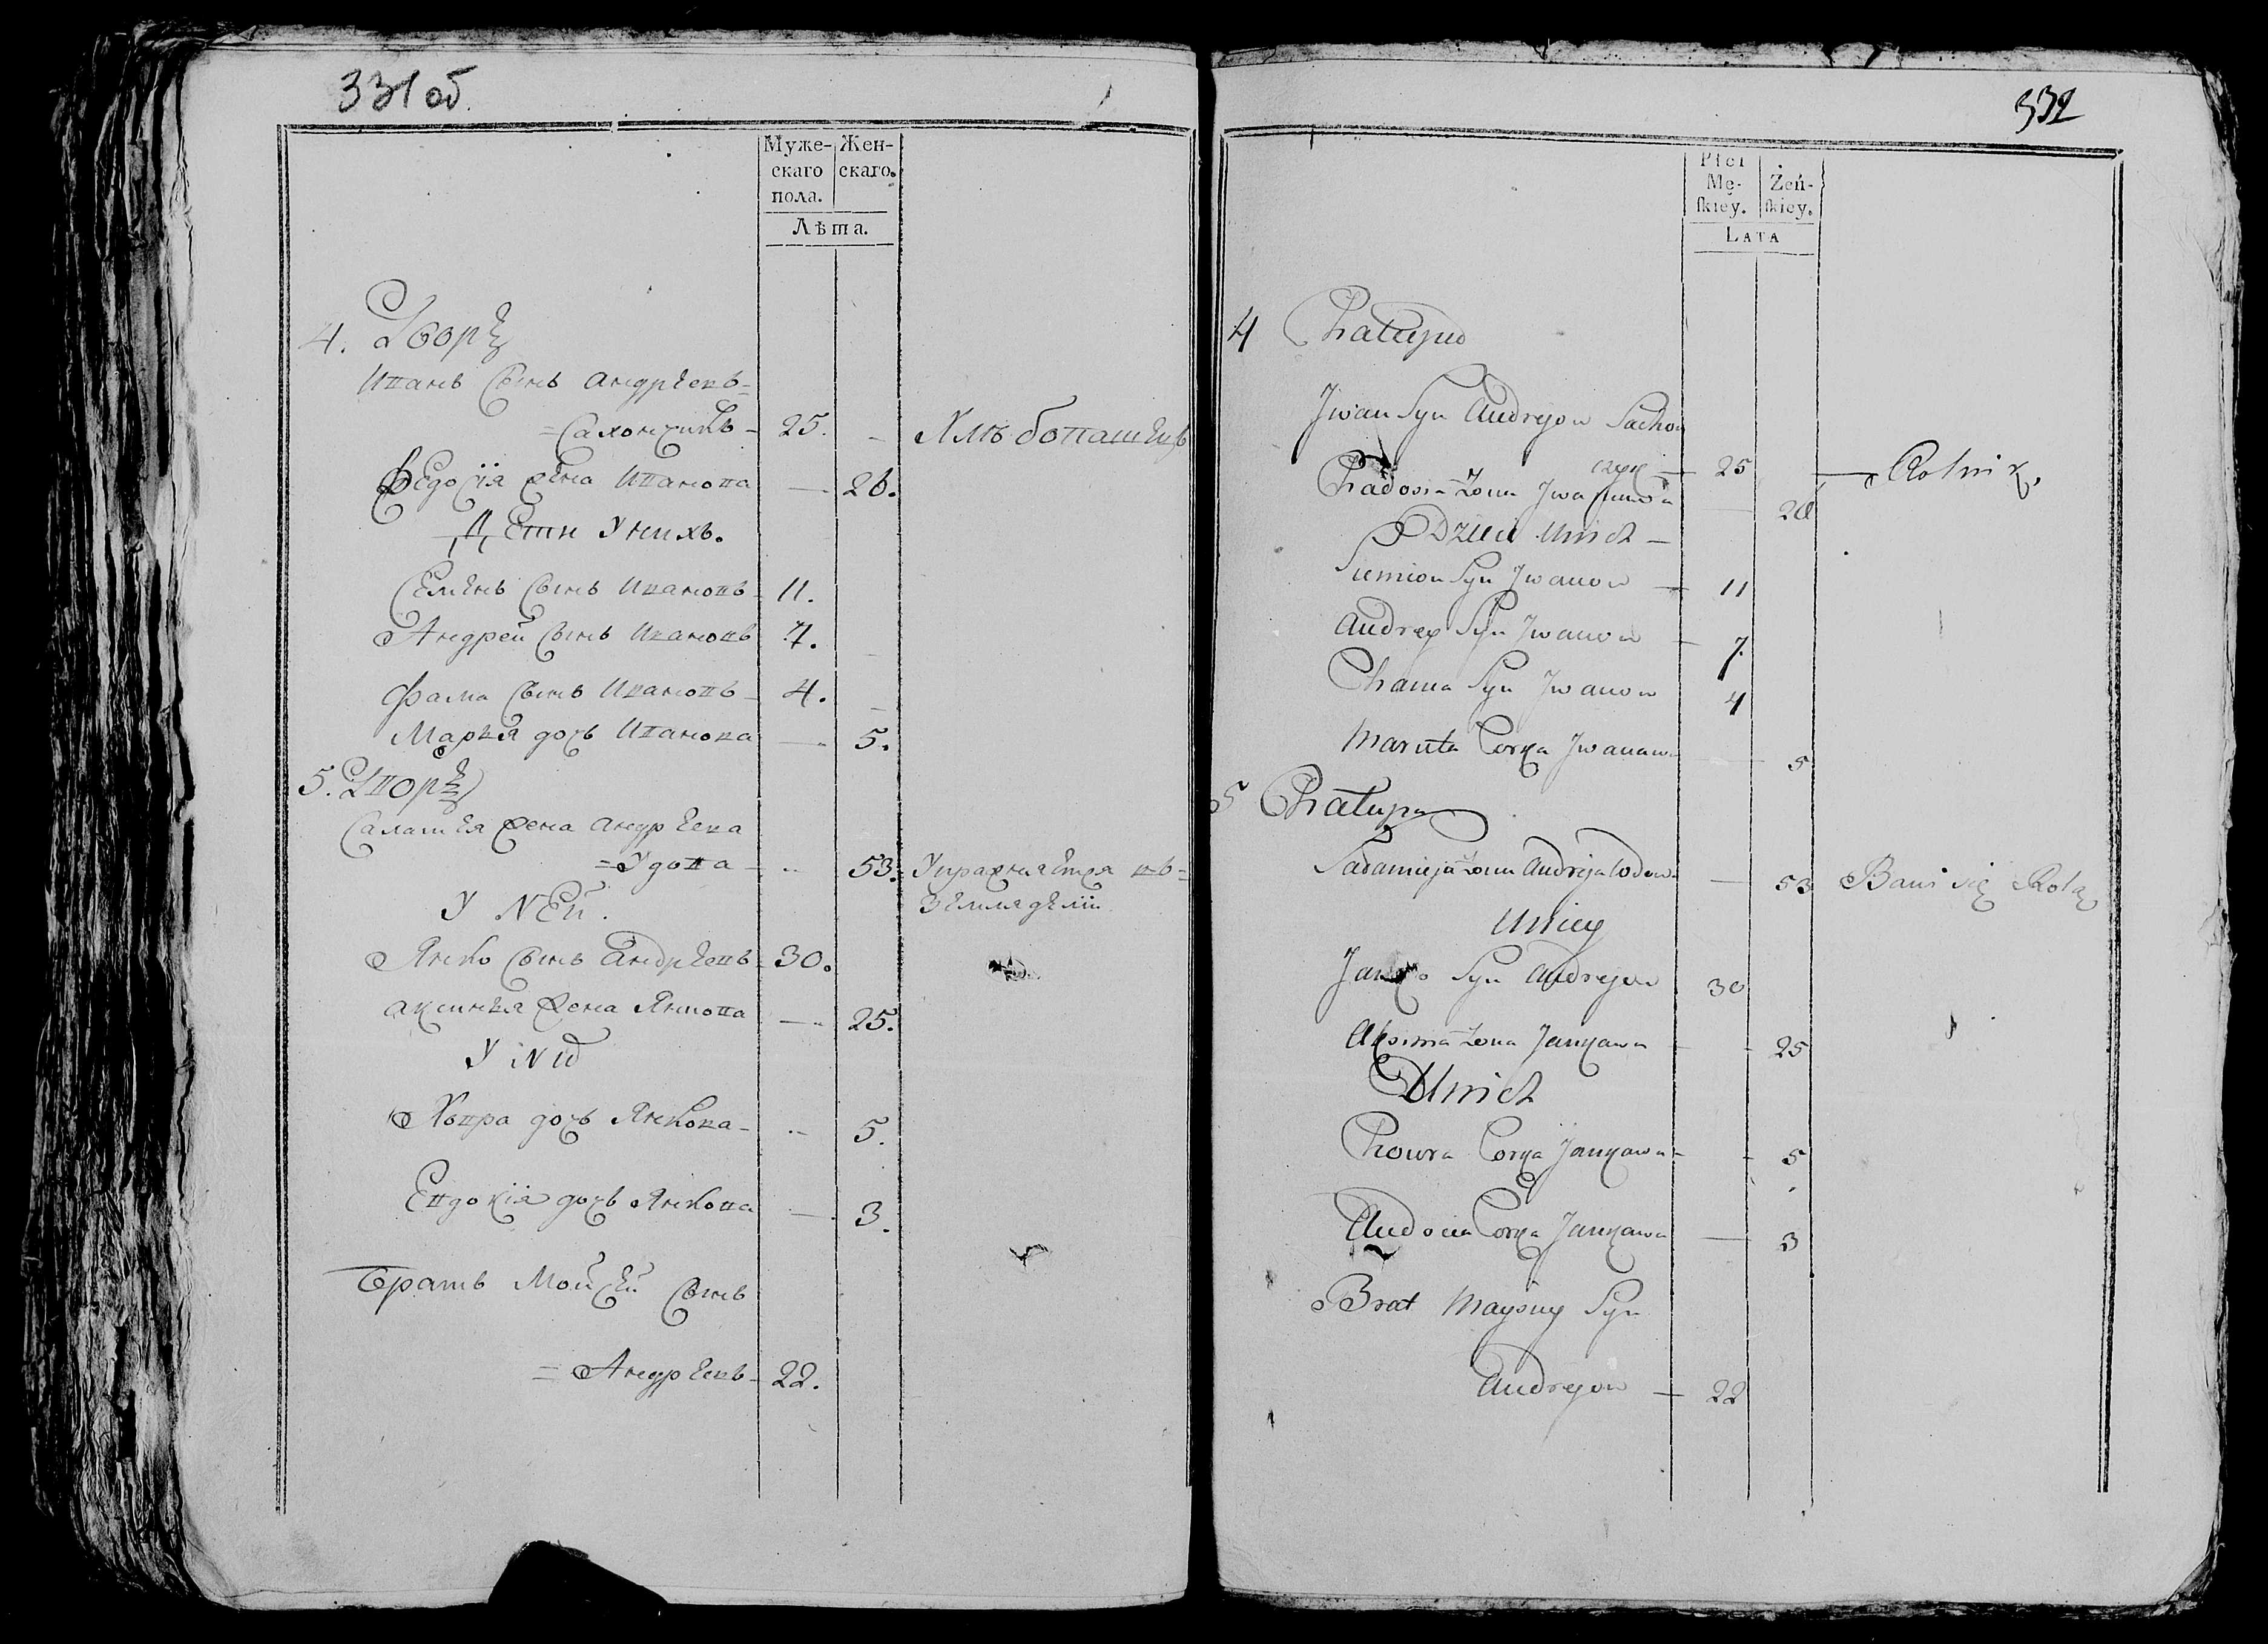 331 об.
Муже-
скаго
пола.
Жен-
скаго.
Лѣта.
4. Дворъ
Иванъ Сынъ Андрѣевъ-
=Сахончикъ - 25. - Хлѣбопашецъ
Федосія жена Иванова — 26.
Дѣти Унихъ.
Семенъ Сынъ Ивановъ 11.
Андрей Сынъ Ивановъ 7.
Фама Сынъ Ивановъ - 4. -
Марья дочь Иванова — 5.
5. Дворъ
Саламѣя жена Андрѣева
=Удова - 53. Упражняется въ=
землядѣліи
У Ней.
Янко Сынъ Андрѣевъ 30.
Аксинья жена Янкова — 25.
У Них
Хъвра дочь Янкова - 5.
Евдокія дочь Янкова — 3.
Братъ Мойсей Сынъ
=Андрѣевъ - 22.
332
Płci
Mę-
ſkiey.
Żeń-
ſkiey.
LATA
4 Chałupa
Jwan Syn Andrejow Sachon
czyk — 25 — Rolnik.
Chadosia Żona Jwanowa 20
Dzieci Unich —
Siemion Syn Jwanow — 11
Andrey Syn Jwanow - 7.
Chama Syn Jwanow 4
Maruta Corka Jwanaw 5
5 Chałupa
Sadamieja Żona Andreja Wdow. — 53 Bawi się Rolą
Uniey
Janko Syn Andrejow 30
Aksima Żona Jankawa - 25
Unich
Chowra Corka Jankawa - 5
Audocia Corka Jankawa — 3
Brat Maysiey Syn
Andrejow — 22